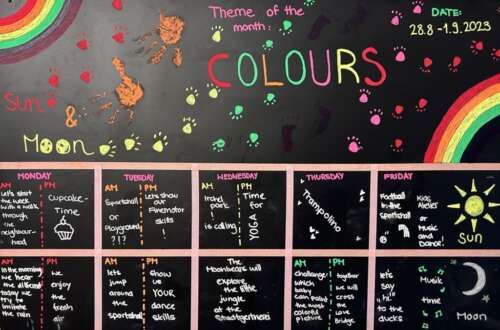 Theme of the
month:
COLOURS
DATE:
28.8 - 1.9.2023
Sun
&
Moon
MONDAY
TUESDAY
WEDNESDAY
THURSDAY
FRIDAY
AM
Let's start
the week
with a walk
through
the
neighbour-
hood
PM
Cupcake-
Time
AM
Sportshall
or
Playground
?!?
PM
let's show
our
Finemotor
skills!
Irchel
park
is calling
Time
for
YOGA
Trampolino
Football
in the
Sportshall
or
Kids
Atelier
Music
and
Dance.
Sun
AM
In the morning
we hear
the different
today we
try to
imitate
the rain
PM
we
enjoy
the
fresh
air
AM
lets
jump
around
the
sportshall
PM
show
us
YOUR
dance
skills
The
Moonbears will
explore
the little
jungle
at the
Stadtgärtnerei
AM
challenge
which
baby
can paint
the most
colorful
picture
PM
together
we will
cross
the
Love
Bridge
let's
say
"hi"
to the
ducks
Musik
time
Moon